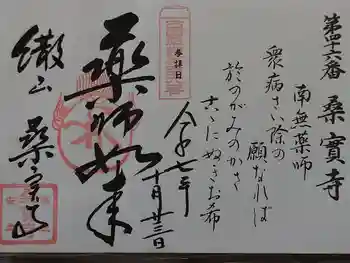 第四十六番 桑實寺
南無薬師
衆病さい除の
願なれば
於のがみのかさ
古こにぬき於希
令和七年
十月廿三日
参拝日
薬師如来
繖山 桑実寺